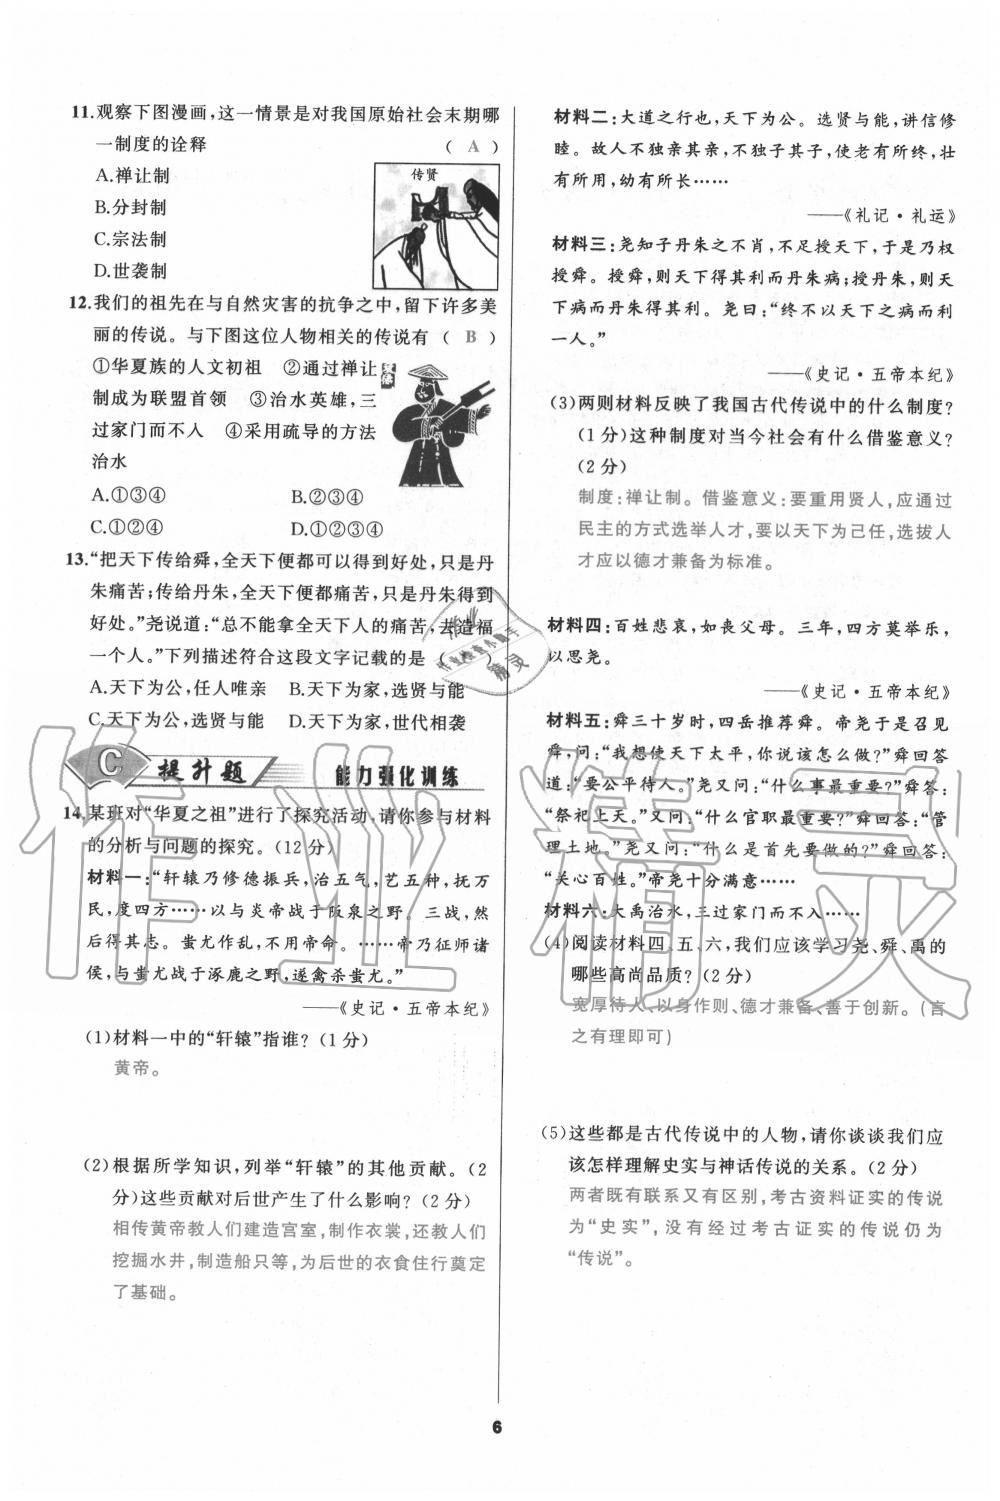 11.观察下图漫画,这一情景是对我国原始社会末期哪
一制度的诠释 ( A )
传贤
A.禅让制
B.分封制
C.宗法制
D.世袭制
12.我们的祖先在与自然灾害的抗争之中,留下许多美
丽的传说。与下图这位人物相关的传说有 ( B )
①华夏族的人文初祖 ②通过禅让
制成为联盟首领 ③治水英雄,三
过家门而不入 ④采用疏导的方法
治水
A.①③④ B.②③④
C.①②④ D.①②③④
13.“把天下传给舜,全天下便都可以得到好处,只是丹
朱痛苦;传给丹朱,全天下便都痛苦,只是丹朱得到
好处。”尧说道:“总不能拿全天下人的痛苦,去造福
一个人。”下列描述符合这段文字记载的是 ( )
A.天下为公,任人唯亲 B.天下为家,选贤与能
C.天下为公,选贤与能 D.天下为家,世代相袭
C 提升题 能力强化训练
14.某班对“华夏之祖”进行了探究活动,请你参与材料
的分析与问题的探究。(12分)
材料一:“轩辕乃修德振兵,治五气,艺五种,抚万
民,度四方……以与炎帝战于阪泉之野。三战,然
后得其志。蚩尤作乱,不用帝命。……帝乃征师诸
侯,与蚩尤战于涿鹿之野,遂禽杀蚩尤。”
——《史记·五帝本纪》
(1)材料一中的“轩辕”指谁?(1分)
黄帝。
(2)根据所学知识,列举“轩辕”的其他贡献。(2
分)这些贡献对后世产生了什么影响?(2分)
相传黄帝教人们建造宫室,制作衣裳,还教人们
挖掘水井,制造船只等,为后世的衣食住行奠定
了基础。
材料二:大道之行也,天下为公。选贤与能,讲信修
睦。故人不独亲其亲,不独子其子,使老有所终,壮
有所用,幼有所长……
——《礼记·礼运》
材料三:尧知子丹朱之不肖,不足授天下,于是乃权
授舜。授舜,则天下得其利而丹朱病;授丹朱,则天
下病而丹朱得其利。尧曰:“终不以天下之病而利
一人。”
——《史记·五帝本纪》
(3)两则材料反映了我国古代传说中的什么制度?
(1分)这种制度对当今社会有什么借鉴意义?
(2分)
制度:禅让制。借鉴意义:要重用贤人,应通过
民主的方式选举人才,要以天下为己任,选拔人
才应以德才兼备为标准。
材料四:百姓悲哀,如丧父母。三年,四方莫举乐,
以思尧。
——《史记·五帝本纪》
材料五:舜三十岁时,四岳推荐舜。帝尧于是召见
舜,问:“我想使天下太平,你说该怎么做?”舜回答
道:“要公平待人。”尧又问:“什么事最重要?”舜答:
“祭祀上天。”又问:“什么官职最重要?”舜回答:“管
理土地。”尧又问:“什么是首先要做的?”舜回答:
“关心百姓。”帝尧十分满意……
材料六:大禹治水,三过家门而不入……
(4)阅读材料四、五、六,我们应该学习尧、舜、禹的
哪些高尚品质?(2分)
宽厚待人、以身作则、德才兼备、善于创新。(言
之有理即可)
(5)这些都是古代传说中的人物,请你谈谈我们应
该怎样理解史实与神话传说的关系。(2分)
两者既有联系又有区别,考古资料证实的传说
为“史实”,没有经过考古证实的传说仍为
“传说”。
6
作业精灵